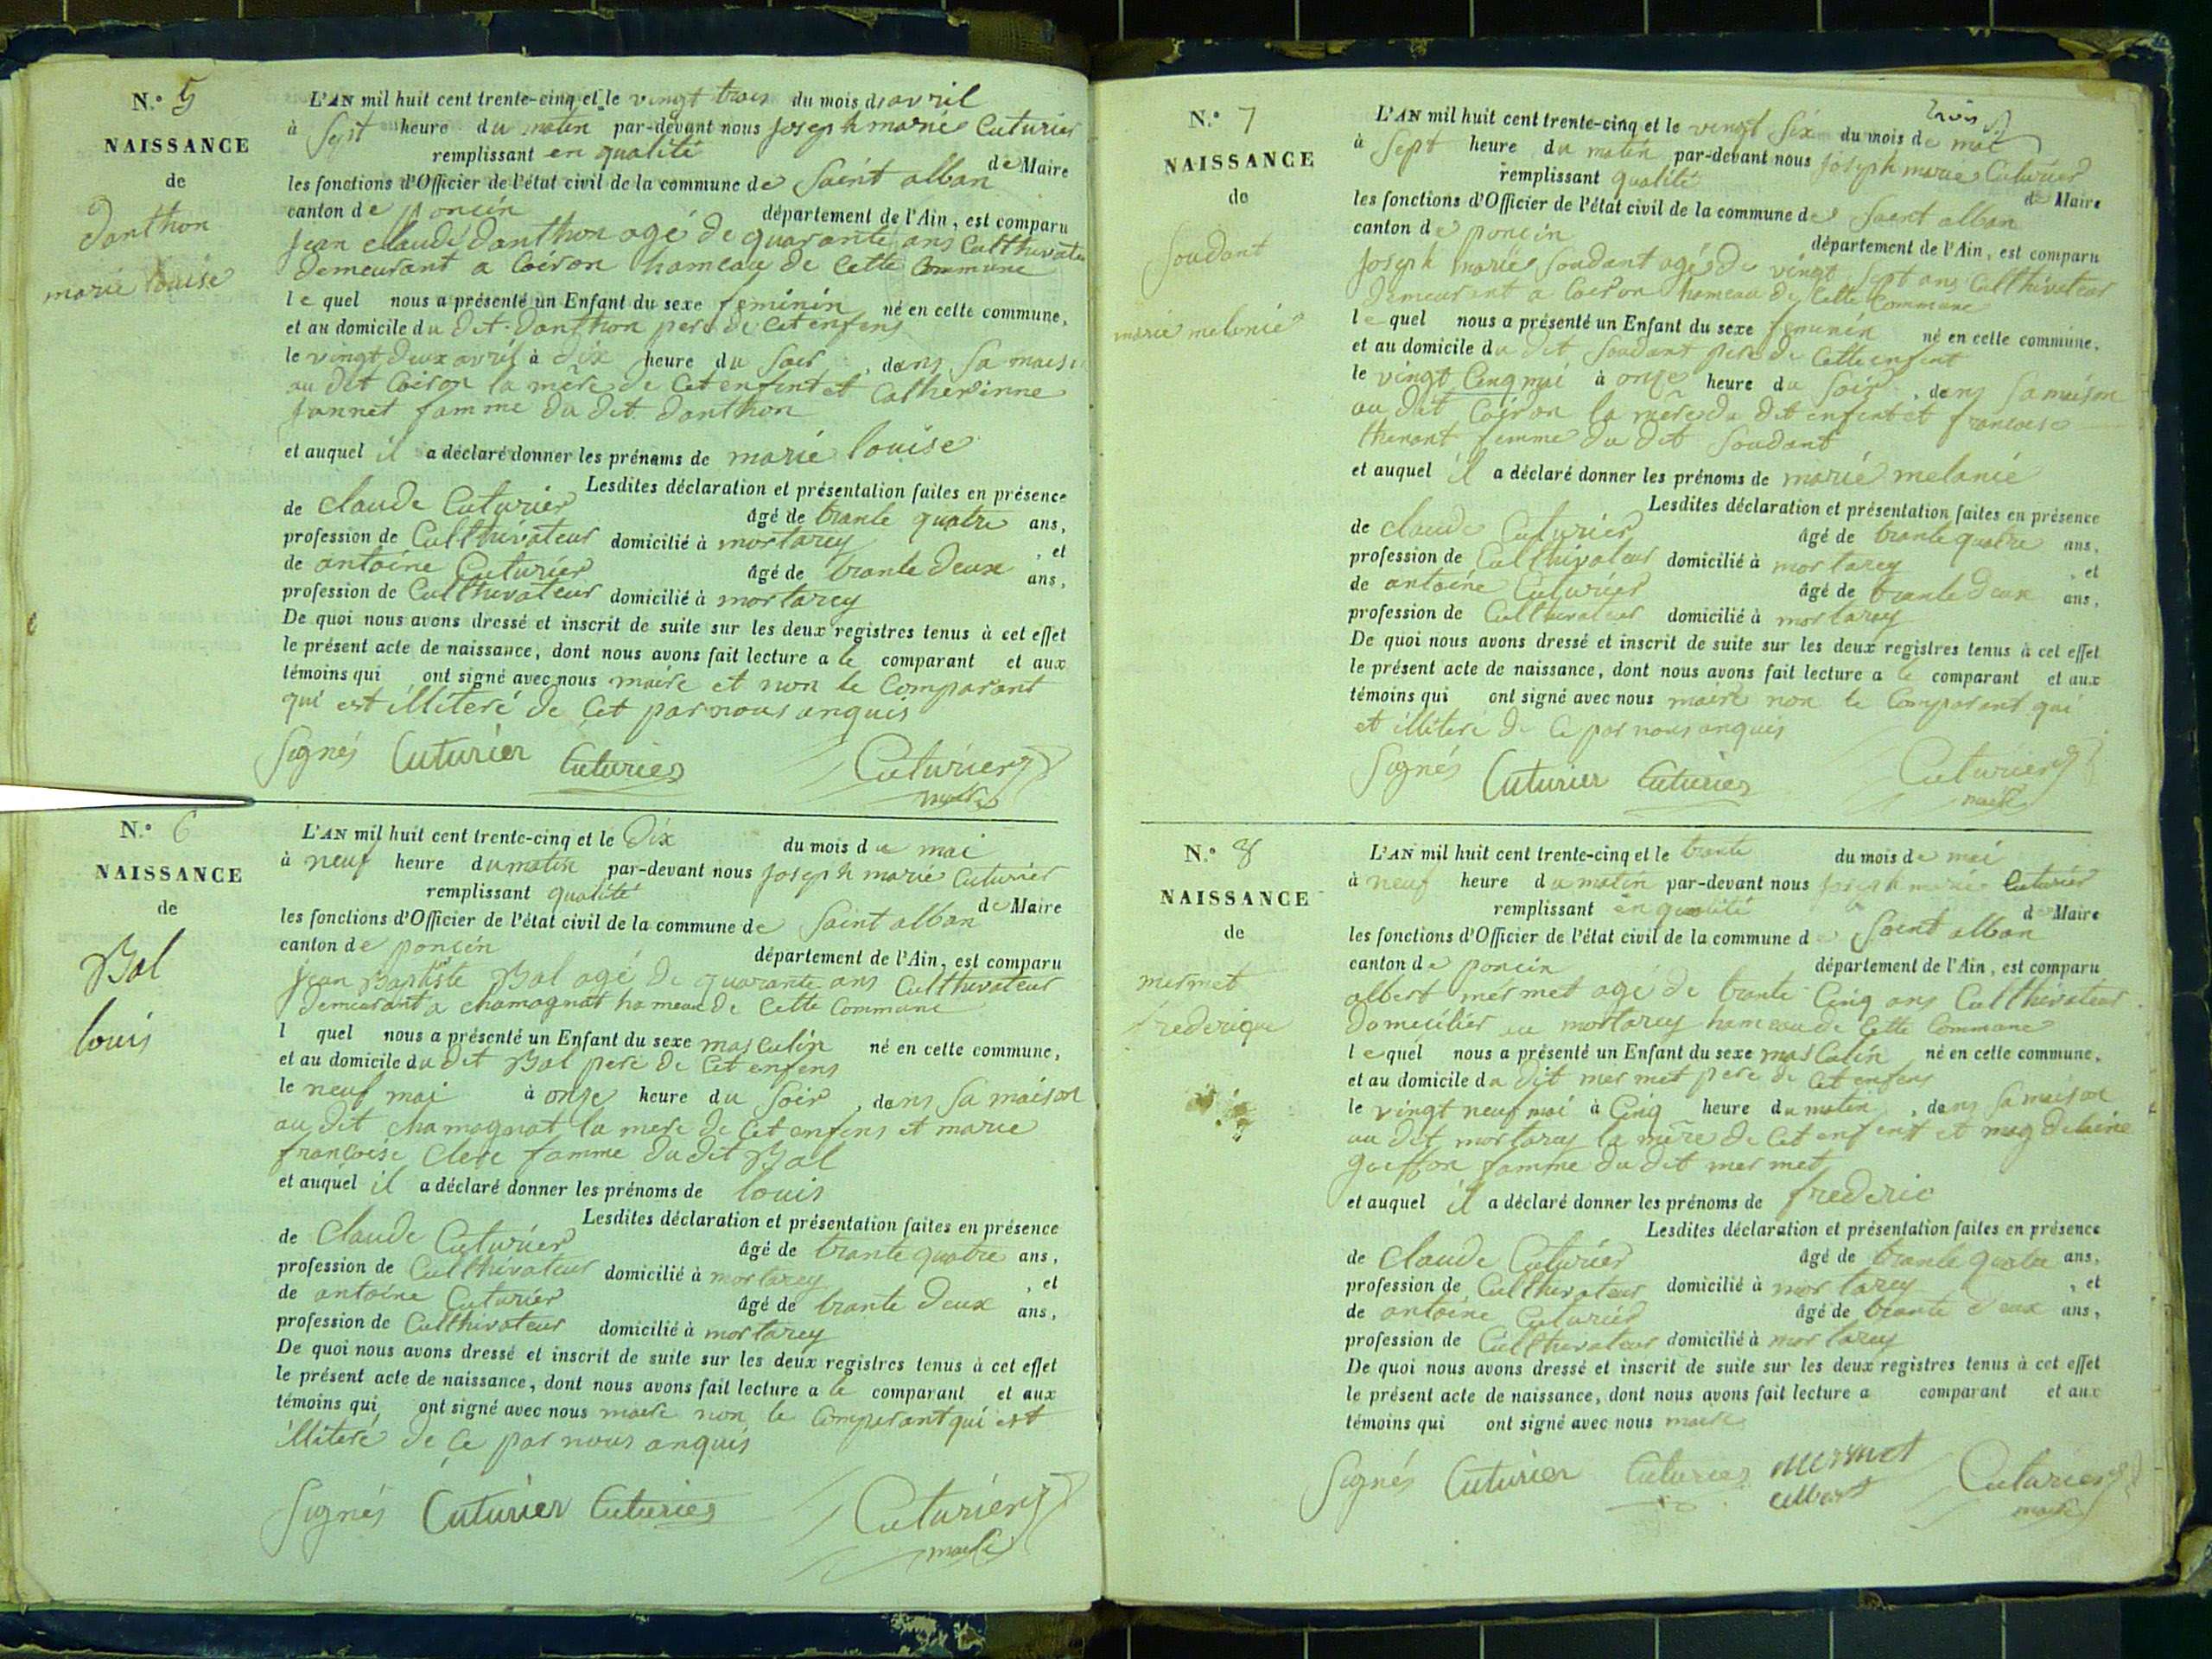 N.° 5
NAISSANCE
de
Danthon
marie louise
L'AN mil huit cent trente-cinq et le vingt trois du mois d avril
à Sept heure du matin par-devant nous Joseph marie Cuturier
remplissant en qualité de Maire
les fonctions d'Officier de l'état civil de la commune de Saint alban
canton de poncin département de l'Ain, est comparu
Jean claude Danthon agé de quarante ans Cultthivateu
demeurant a Coiron hameau de Cette Commune
le quel nous a présenté un Enfant du sexe feminin né en cette commune,
et au domicile du dit Danthon pere de Cet enfens
le vingt deux avril à dix heure du Soir, dans Sa maison
au dit Coiron la mère de Cet enfent et Catherinne
Jannet famme du dit Danthon
et auquel il a déclaré donner les prénoms de marie louise
Lesdites déclaration et présentation faites en présence
de claude Cuturier âgé de trante quatre ans,
profession de Cultthivateur domicilié à mortarey, et
de antoine Cuturier âgé de trante deux ans,
profession de Cultthivateur domicilié à mortarey
De quoi nous avons dressé et inscrit de suite sur les deux registres tenus à cet effet
le présent acte de naissance, dont nous avons fait lecture a le comparant et aux
témoins qui ont signé avec nous maire et non le Comparant
qui est illiteré de Cet par nous anquis
Signés Cuturier Cuturier Cuturier
maire
N.° 6
NAISSANCE
de
Bal
louis
L'AN mil huit cent trente-cinq et le Dix du mois de mai
à neuf heure du matin par-devant nous Joseph marie Cuturier
remplissant qualité de Maire
les fonctions d'Officier de l'état civil de la commune de Saint alban
canton de poncin département de l'Ain, est comparu
Jean Baptiste Bal agé de quarante ans Cultthivateur
demeurant a chamagnat hameau de Cette Commune
l quel nous a présenté un Enfant du sexe masculin né en cette commune,
et au domicile du dit Bal pere de Cet enfens
le neuf mai à onze heure du Soir, dans Sa maison
au dit chamagnat la mere de Cet enfens et marie
françoise Clere famme du dit Bal
et auquel il a déclaré donner les prénoms de louis
Lesdites déclaration et présentation faites en présence
de Claude Cuturier âgé de trante quatre ans,
profession de Cultthivateur domicilié à mortarey, et
de antoine Cuturier âgé de trante deux ans,
profession de Cultthivateur domicilié à mortarey
De quoi nous avons dressé et inscrit de suite sur les deux registres tenus à cet effet
le présent acte de naissance, dont nous avons fait lecture a le comparant et aux
témoins qui ont signé avec nous maire non le Comparant qui est
illiteré de Ce par nous anquis
Signés Cuturier Cuturier Cuturier
maire
N.° 7
NAISSANCE
de
Soudant
marie melanie
L'AN mil huit cent trente-cinq et le vingt Six du mois de mai
à Sept heure du matin par-devant nous Joseph marie Cuturier
remplissant qualité de Maire
les fonctions d'Officier de l'état civil de la commune de Saint alban
canton de poncin département de l'Ain, est comparu
Joseph marie Soudant agé de vingt Sept ans Cultthivateur
demeurent a Coiron hameau de Cette Commune
le quel nous a présenté un Enfant du sexe feminin né en cette commune,
et au domicile du dit Soudant pere de Cette enfent
le vingt Cinq mai à onze heure du Soir, dans Sa maison
au dit Coiron la mère du dit enfent et francoise
thenant femme du dit Soudant
et auquel il a déclaré donner les prénoms de marie melanie
Lesdites déclaration et présentation faites en présence
de claude Cuturier âgé de trante quatre ans,
profession de Cultthivateur domicilié à mortarey, et
de antoine Cuturier âgé de trante deux ans,
profession de Cultthivateur domicilié à mortarey
De quoi nous avons dressé et inscrit de suite sur les deux registres tenus à cet effet
le présent acte de naissance, dont nous avons fait lecture a le comparant et aux
témoins qui ont signé avec nous maire non le Comparent qui
et illiteré de Ce par nous anquis
Signés Cuturier Cuturier Cuturier
maire
N.° 8
NAISSANCE
de
mermet
frederique
L'AN mil huit cent trente-cinq et le trante du mois de mai
à neuf heure du matin par-devant nous Joseph marie Cuturier
remplissant en qualité de Maire
les fonctions d'Officier de l'état civil de la commune d Saint alban
canton de poncin département de l'Ain, est comparu
albert mermet agé de trante Cinq ans Cultthivateur
domicilier au mortarey hameau de Cette Commune
le quel nous a présenté un Enfant du sexe masculin né en cette commune,
et au domicile du dit mermet pere de Cet enfens
le vingt neuf mai à Cinq heure du matin, dans Sa maison
au dit mortarey la mère de Cet enfent et magdelaine
goiffon famme du dit mermet
et auquel il a déclaré donner les prénoms de frederic
Lesdites déclaration et présentation faites en présence
de claude Cuturier âgé de trante quatre ans,
profession de Cultthivateur domicilié à mortarey, et
de antoine Cuturier âgé de trante deux ans,
profession de Cultthivateur domicilié à mortarey
De quoi nous avons dressé et inscrit de suite sur les deux registres tenus à cet effet
le présent acte de naissance, dont nous avons fait lecture a comparant et aux
témoins qui ont signé avec nous maire
Signés Cuturier Cuturier mermet Cuturier
albert maire